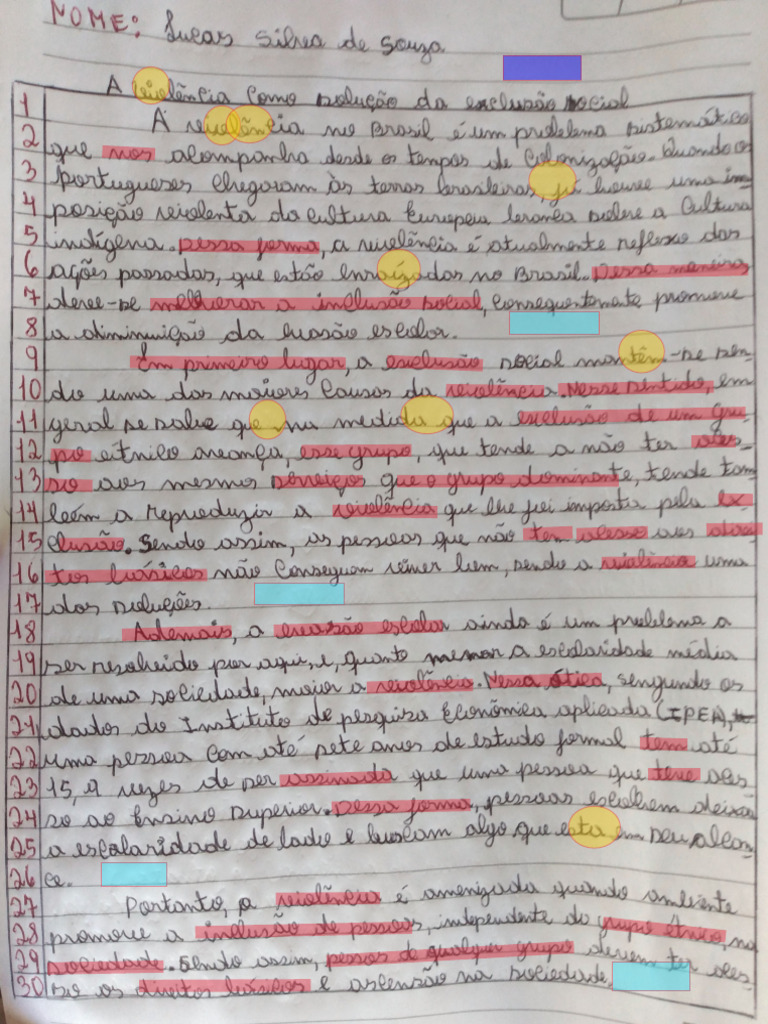 NOME: Lucas Silva de Souza
A violência como solução da exclusão social
1 A violência no Brasil é um problema sistemático
2 que nos acompanha desde os tempos de Colonização. Quando os
3 portugueses chegaram às terras brasileiras, já houve uma im-
4 posição violenta da cultura Europeia branca sobre a Cultura
5 indígena. Dessa forma, a violência é atualmente reflexo das
6 ações passadas, que estão enraízadas no Brasil. Dessa maneira
7 deve-se melhorar a inclusão social, consequentemente promove
8 a diminuição da evasão escolar.
9 Em primeiro lugar, a exclusão social mantêm-se sen-
10 do uma das maiores causas da violência. Nesse sentido, em
11 geral se sabe que na medida que a exclusão de um gru-
12 po eítnico avança, esse grupo, que tende a não ter aces-
13 so aos mesmos serviços que o grupo dominante, tende tam
14 bém a reproduzir a violência que lhe foi imposta pela ex
15 clusão. Sendo assim, as pessoas que não tem acesso aos direi
16 tos básicos não conseguem viver bem, sendo a violência uma
17 das soluções.
18 Ademais, a evasão escolar ainda é um problema a
19 ser resolvido por aqui, e, quanto menor a escolaridade média
20 de uma sociedade, maior a violência. Nessa ótica, sengundo os
21 dados do Instituto de pesquisa Econômica aplicada (IPEA),
22 uma pessoa com até sete anos de estudo formal tem até
23 15,9 vezes de ser assinada que uma pessoa que teve aces-
24 so ao Ensino superior. Dessa forma, pessoas escolhem deixar
25 a escolaridade de lado e buscam algo que esta em seu alcan-
26 ce.
27 Portanto, a violência é amenizada quando ambiente
28 promove a inclusão de pessoas, independente do grupo étnico, na
29 sociedade. Sendo assim, pessoas de qualquer grupo devem ter aces-
30 so os direitos básicos e ascensão na sociedade.